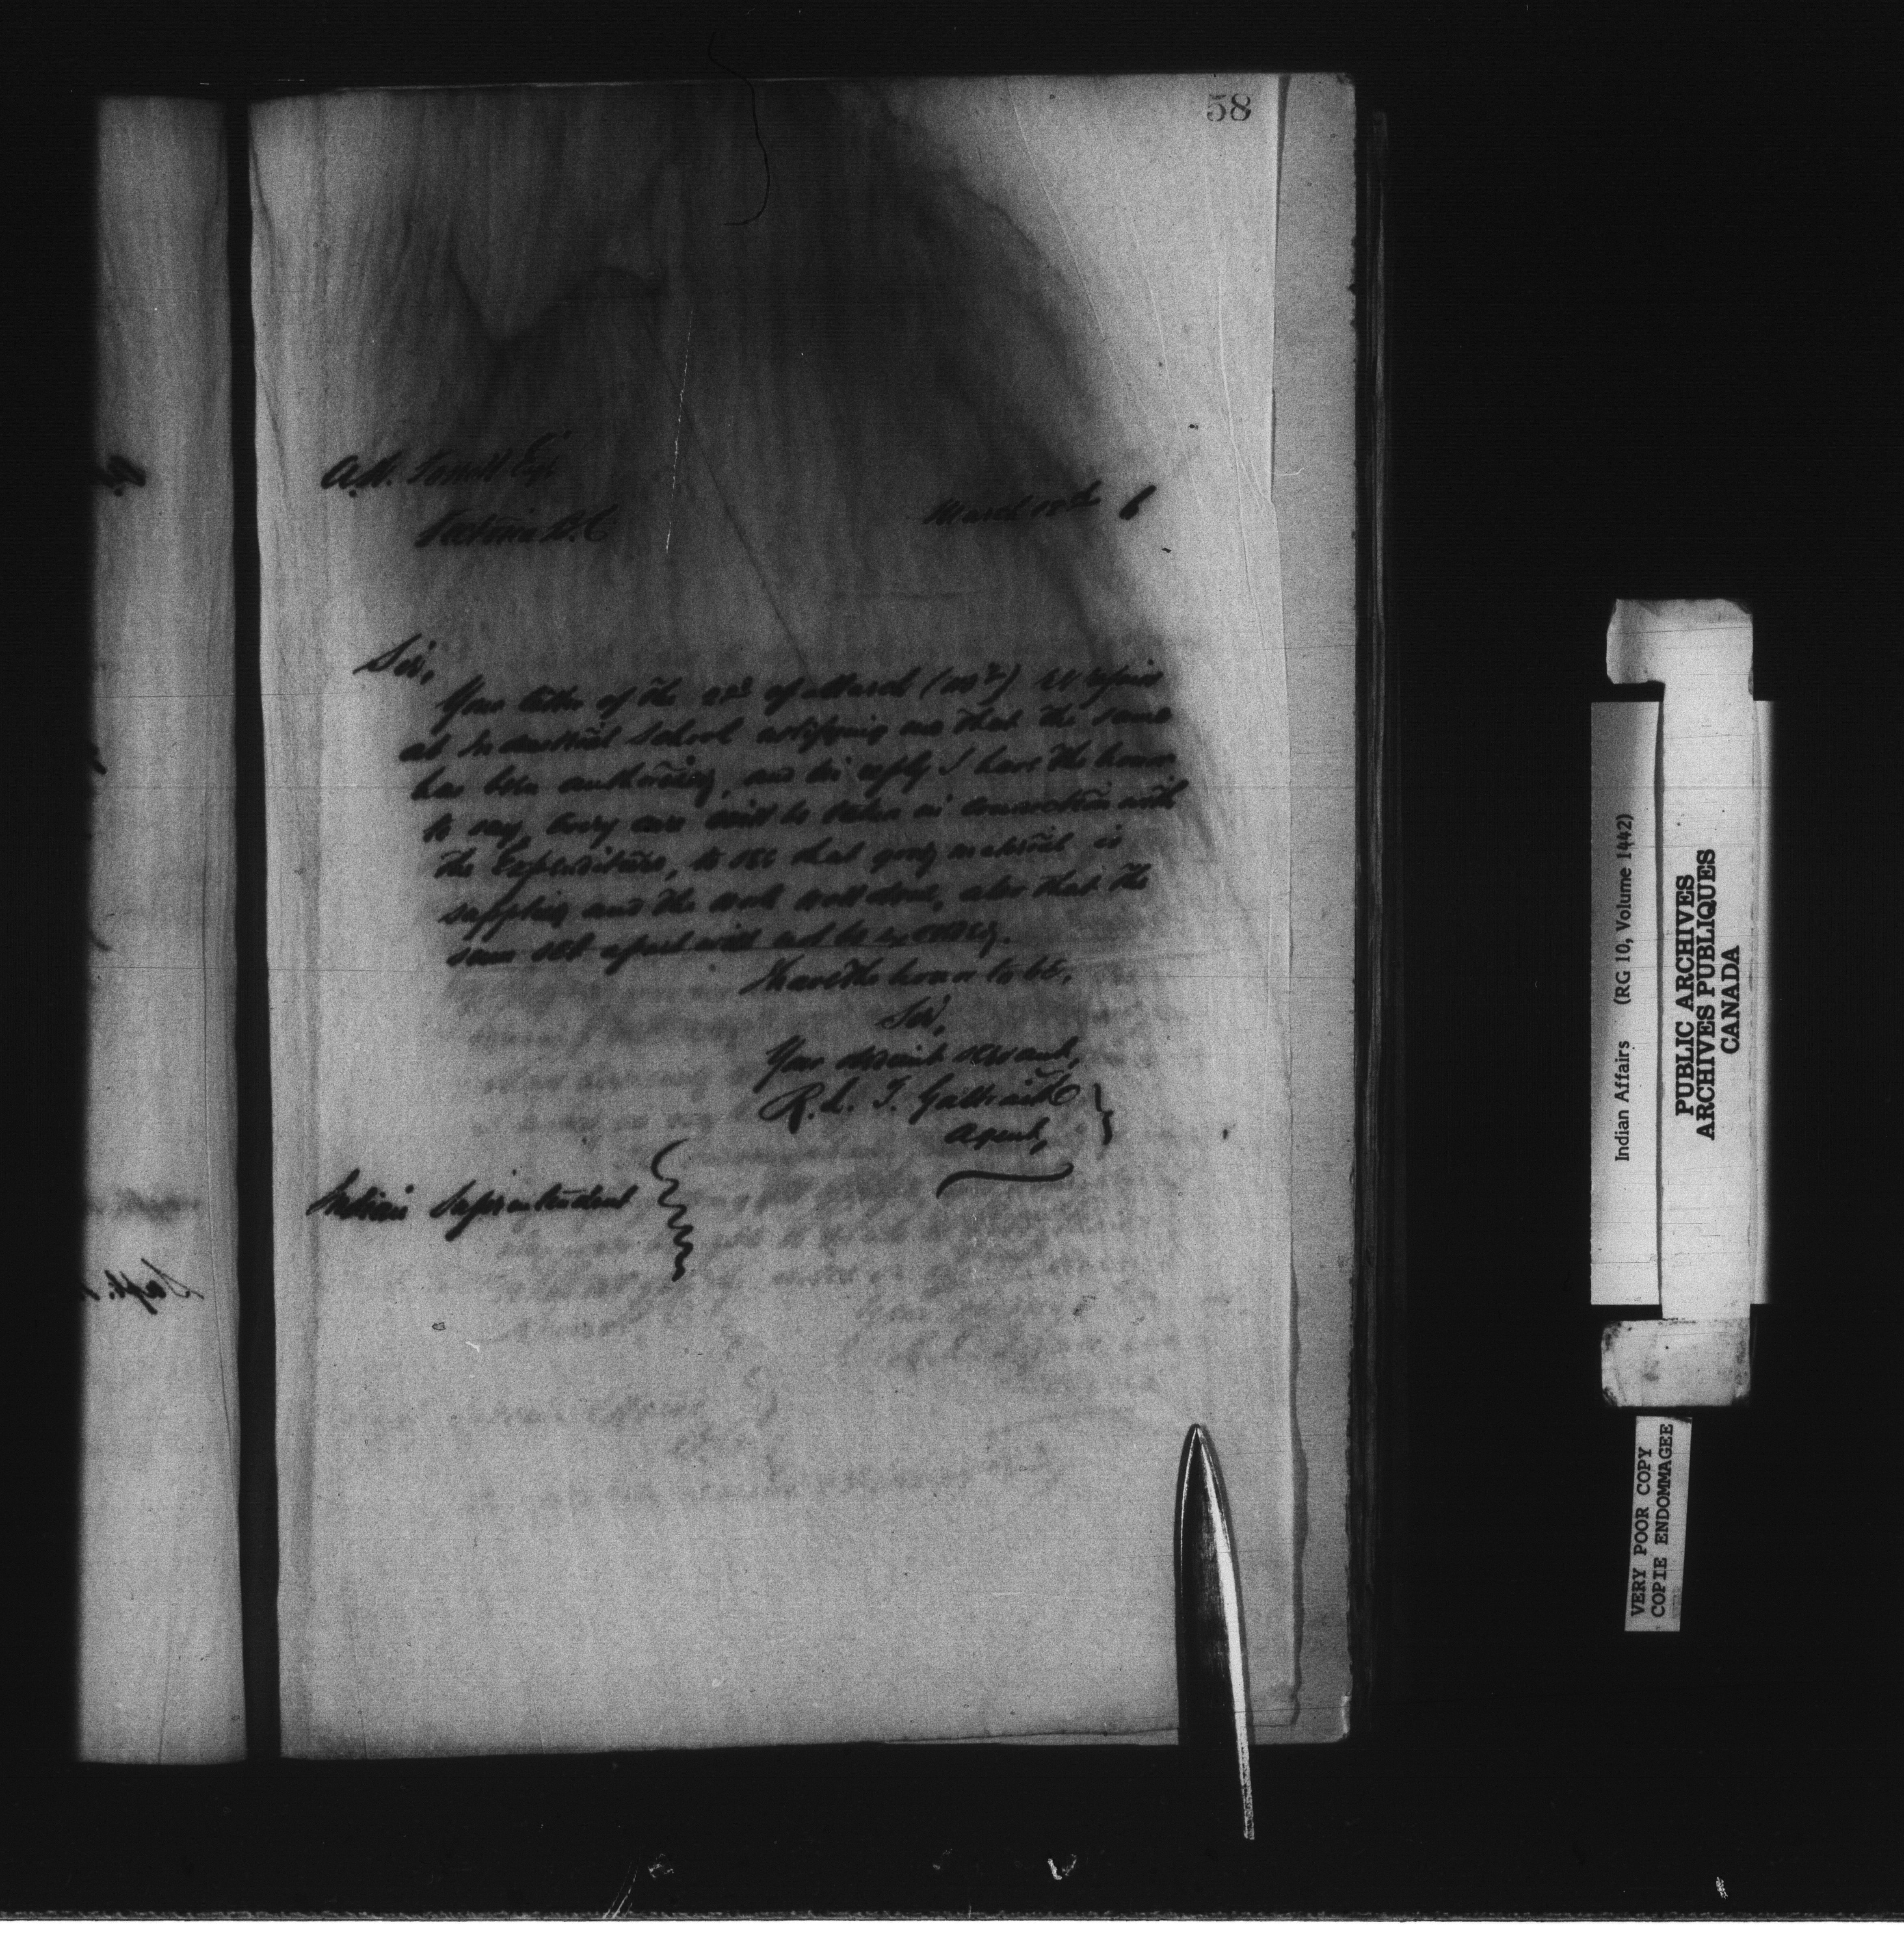 58
Victoria B.C.
March 18th 6
Sir,
Your letter of the 12th of March re repairs
at Industrial School notifying me that the same
has been authorized, and in reply I have the honor
to say, every care will be taken in connection with
the Expenditure, to see that good material is
supplied and the work well done, also that the
sum set apart will not be exceeded.
I have the honor to be,
Sir,
Your obedient servant,
R. L. T. Galbraith
Agent,
Indian Superintendent
Supt.
Indian Affairs (RG 10, Volume 1442)
PUBLIC ARCHIVES
ARCHIVES PUBLIQUES
CANADA
VERY POOR COPY
COPIE ENDOMMAGEE